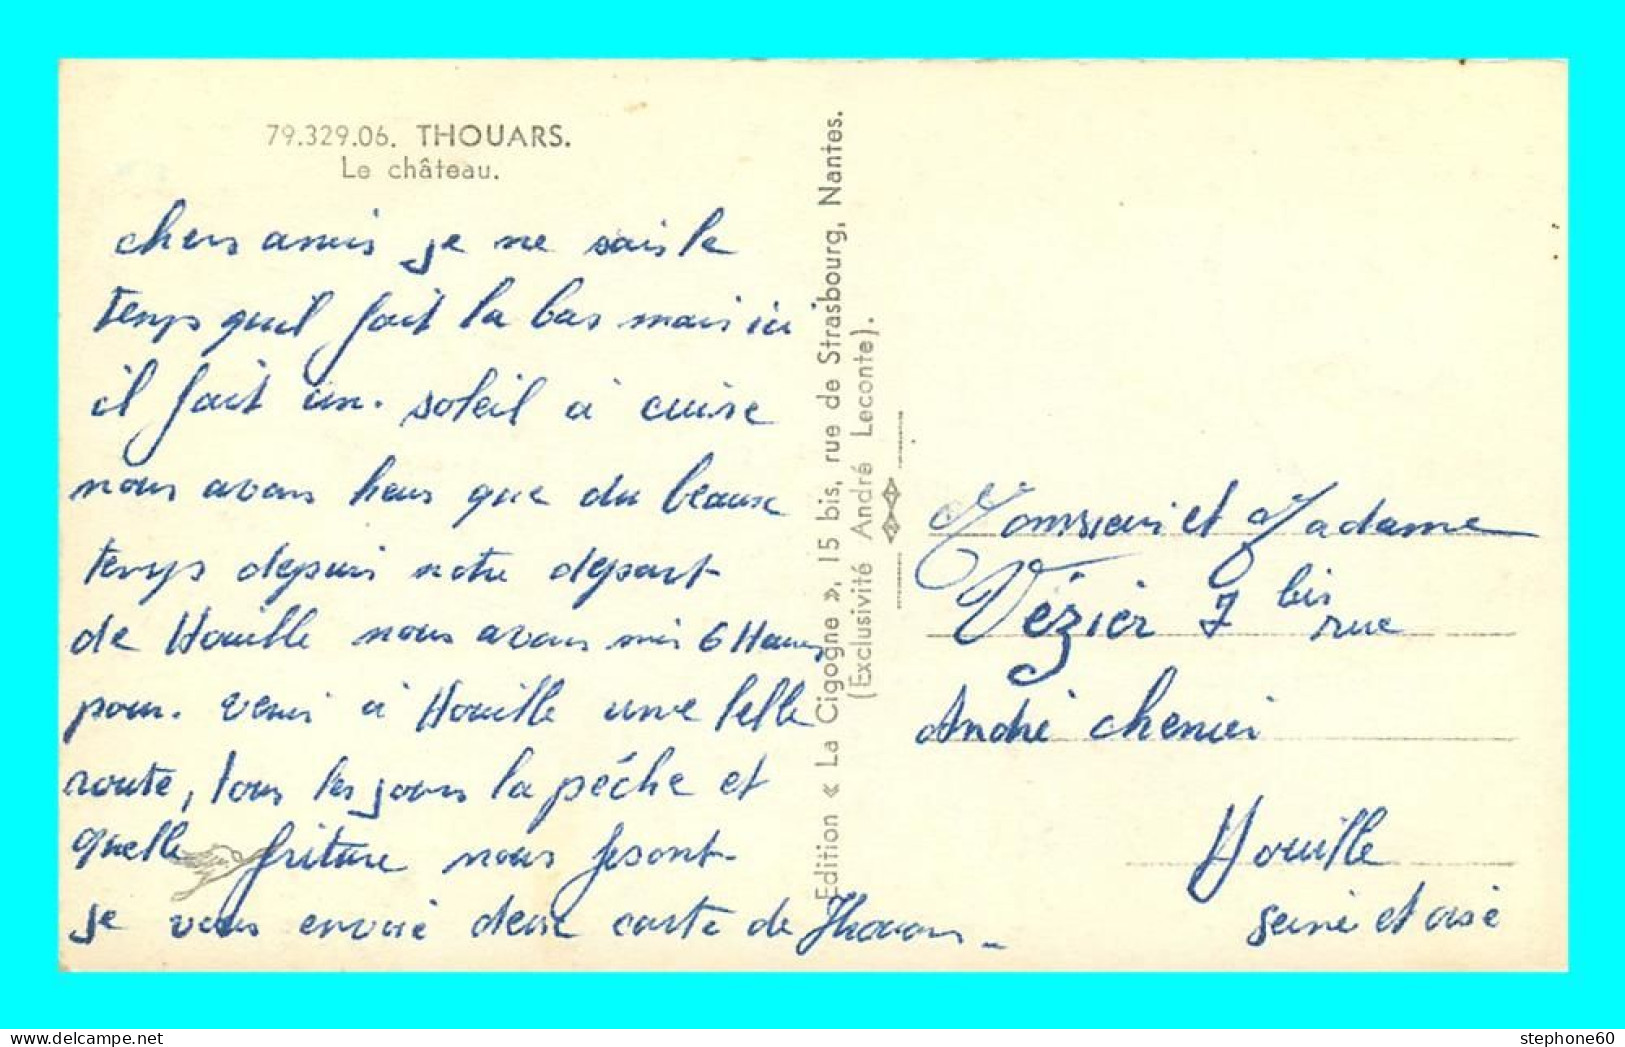 79.329.06. THOUARS.
Le château.
chers amis je ne sais le
temps quil fait la bas mais ici
il fait un. soleil à cuire
nous avons heus que du beaux
temps depuis notre depart
de Houille nous avons mis 6 Heures
pour. venir à Houille une belle
route, tous les jours la pêche et
quelle friture nous fesont
je vous envoié deux carte de Thouars
Edition « La Cigogne », 15 bis, rue de Strasbourg, Nantes.
(Exclusivité André Leconte).
Monsieur et Madame
Vézier 7 bis rue
André Chenier
Houille
Seine et oise
stephone60